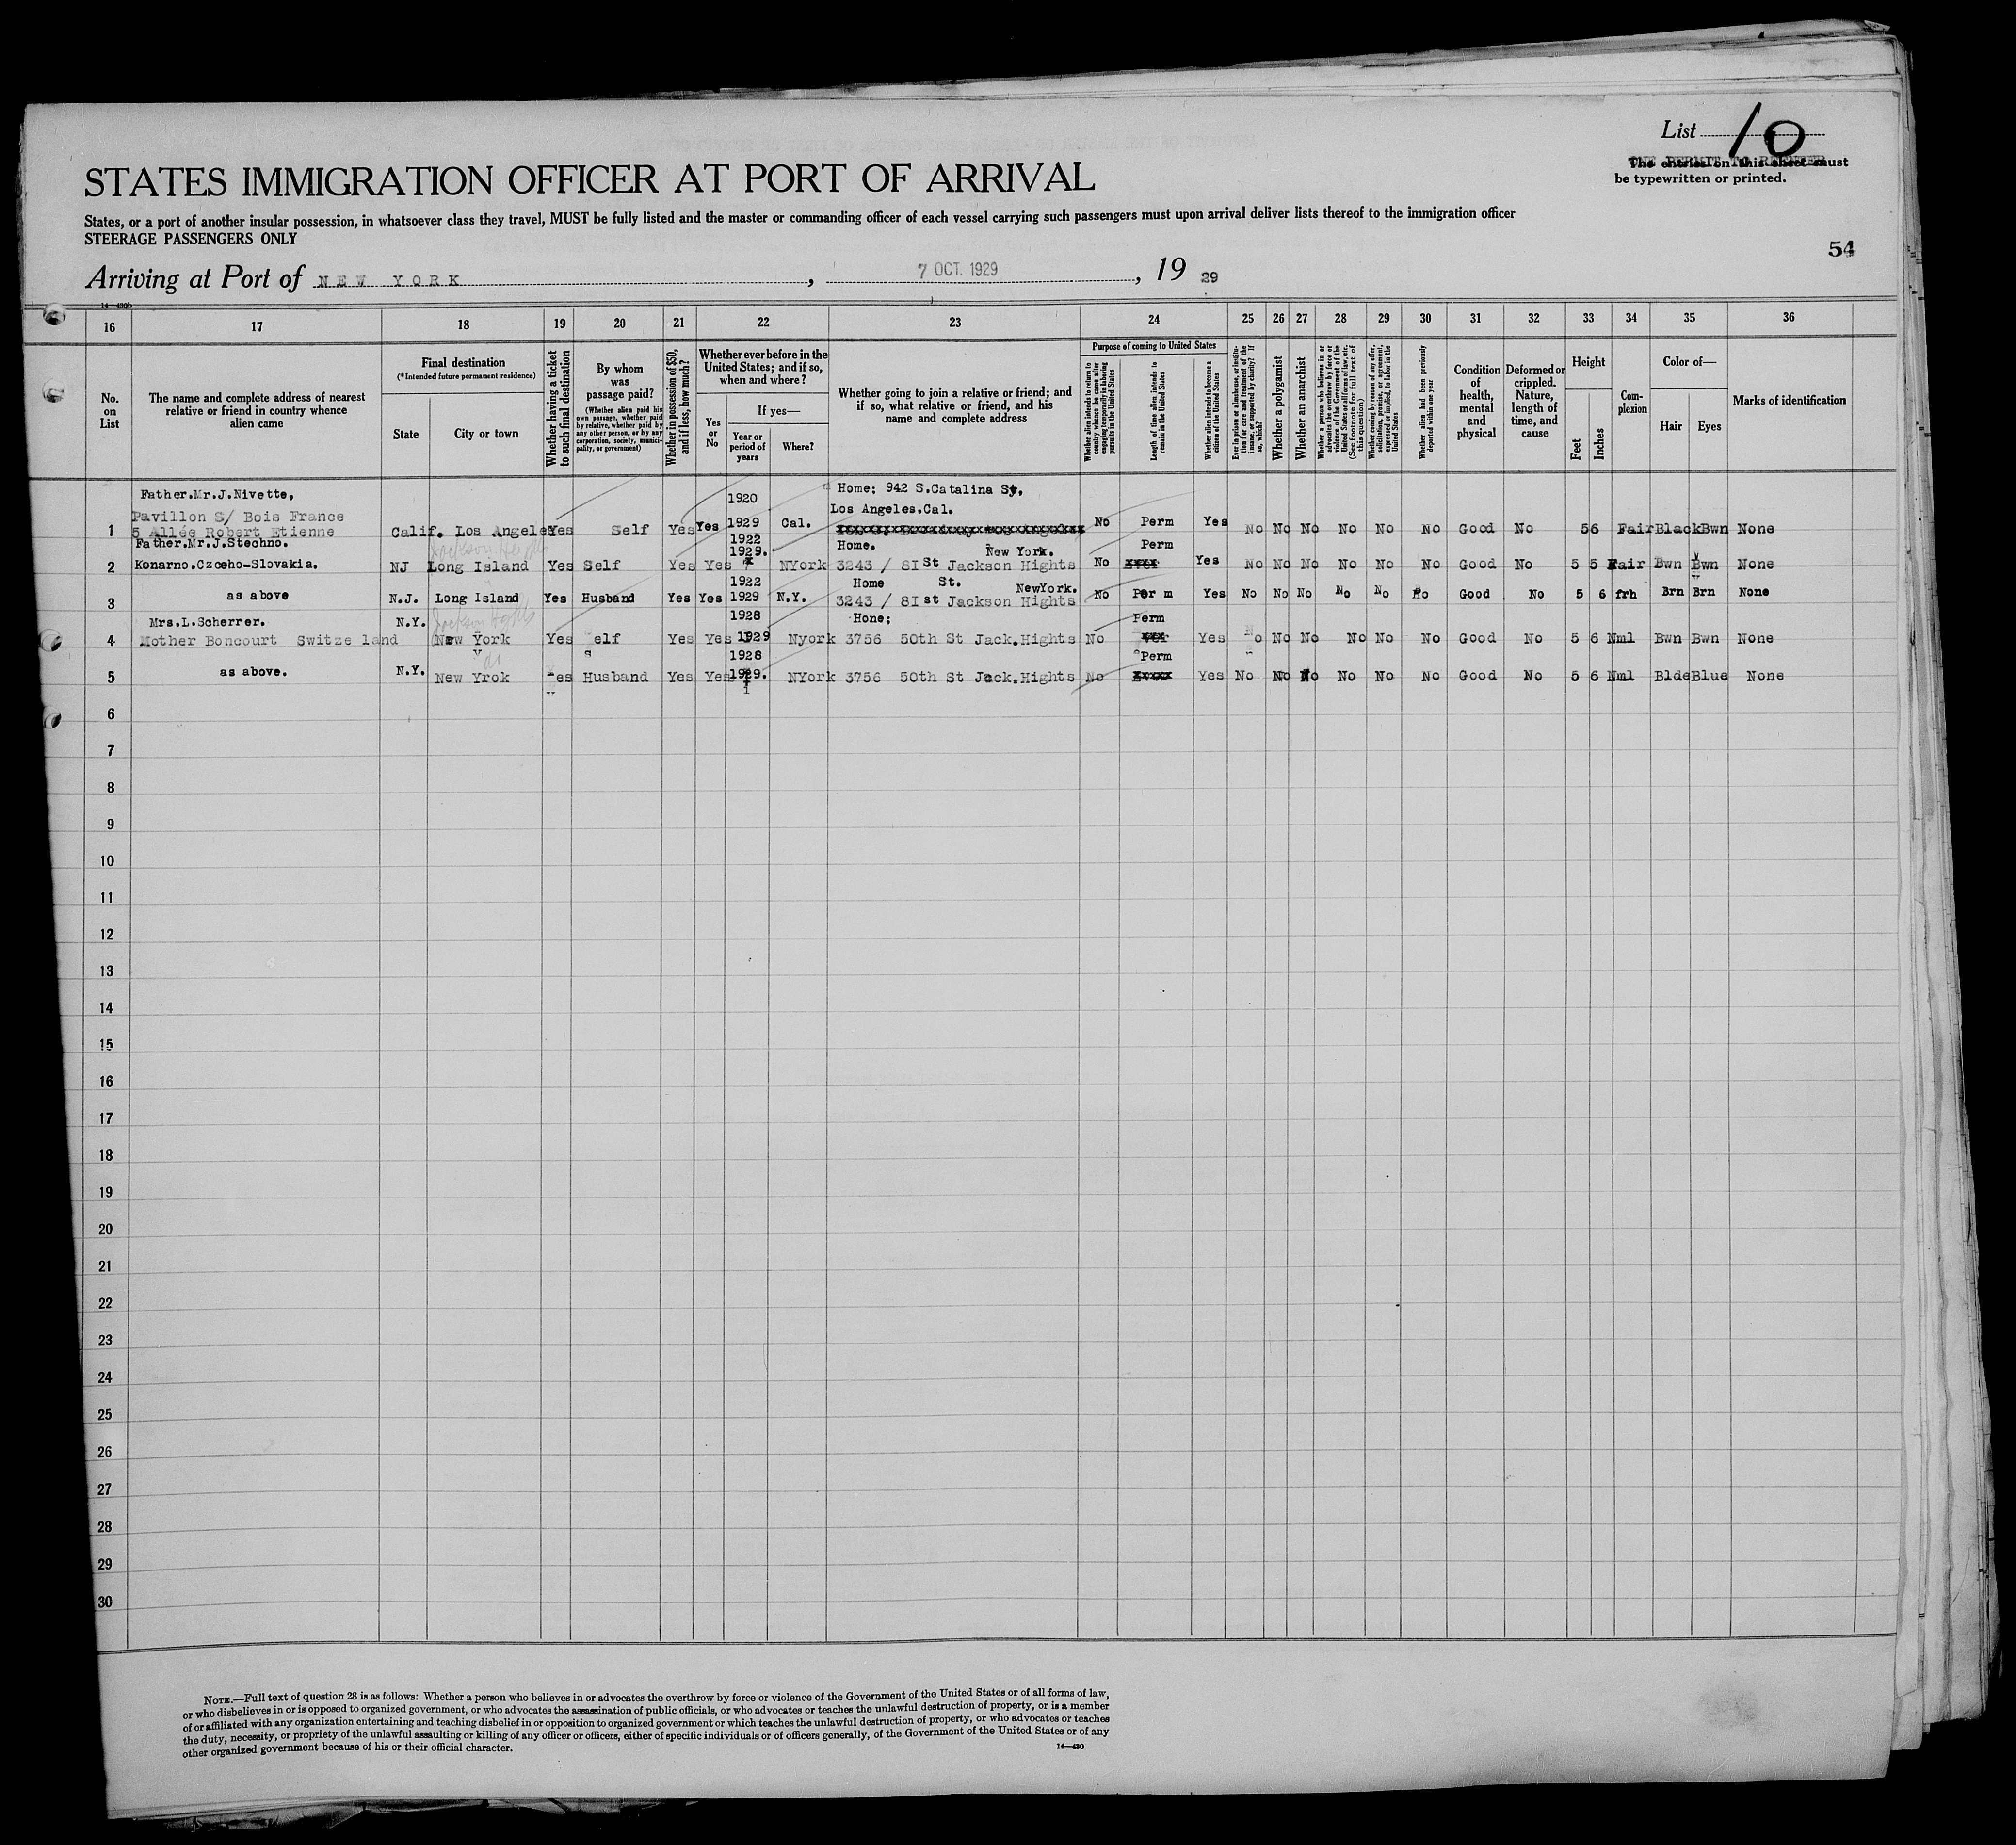 List 10
The entries on this sheet must
be typewritten or printed.
STATES IMMIGRATION OFFICER AT PORT OF ARRIVAL
States, or a port of another insular possession, in whatsoever class they travel, MUST be fully listed and the master or commanding officer of each vessel carrying such passengers must upon arrival deliver lists thereof to the immigration officer
STEERAGE PASSENGERS ONLY
54
Arriving at Port of NEW YORK, 7 OCT. 1929, 19 29
14—430b
16 17 18 19 20 21 22 23 24 25 26 27 28 29 30 31 32 33 34 35 36
No. on List
The name and complete address of nearest relative or friend in country whence alien came
Final destination
(*Intended future permanent residence)
State
City or town
Whether having a ticket to such final destination
By whom was passage paid?
(Whether alien paid his own passage, whether paid by relative, whether paid by any other person, or by any corporation, society, municipality, or government)
Whether in possession of $50, and if less, how much?
Whether ever before in the United States; and if so, when and where?
Yes or No
If yes—
Year or period of years
Where?
Whether going to join a relative or friend; and if so, what relative or friend, and his name and complete address
Purpose of coming to United States
Whether alien intends to return to country whence he came after engaging temporarily in laboring pursuits in the United States
Length of time alien intends to remain in the United States
Whether alien intends to become a citizen of the United States
Ever in prison or almshouse, or institution for care and treatment of the insane, or supported by charity? If so, which?
Whether a polygamist
Whether an anarchist
Whether a person who believes in or advocates the overthrow by force or violence of the Government of the United States or all forms of law, etc. (See footnote for full text of this question)
Whether coming by reason of any offer, solicitation, promise, or agreement, expressed or implied, to labor in the United States
Whether alien had been previously deported within one year
Condition of health, mental and physical
Deformed or crippled. Nature, length of time, and cause
Height
Feet
Inches
Complexion
Color of—
Hair
Eyes
Marks of identification
Father.Mr.J.Nivette, 1920 Home; 942 S.Catalina St,
Pavillon S/ Bois France Los Angeles.Cal.
1 5 Allée Robert Etienne Calif. Los Angeles Yes Self Yes Yes 1929 Cal. No Perm Yes No No No No No No Good No 56 Fair Black Bwn None
Father.Mr.J.Stechno. Jackson Heights 1922 1929. Home. New York. Perm
2 Konarno.Czceho-Slovakia. NJ Long Island Yes Self Yes Yes NYork 3243 / 81St Jackson Hights No Yes No No No No No No Good No 5 5 Fair Bwn Bwn None
1922 Home St. NewYork.
3 as above N.J. Long Island Yes Husband Yes Yes 1929 N.Y. 3243 / 81st Jackson Hights No Per m Yes No No No No No No Good No 5 6 frh Brn Brn None
Mrs.L.Scherrer. N.Y. Jackson Hights 1928 Hone; Perm
4 Mother Boncourt Switze land New York Yes elf Yes Yes 1929 Nyork 3756 50th St Jack.Hights No Yes No No No No No No Good No 5 6 Nml Bwn Bwn None
do 1928 Perm
5 as above. N.Y. New Yrok Yes Husband Yes Yes 1929. NYork 3756 50th St Jack.Hights No Yes No No No No No No Good No 5 6 Nml Blde Blue None
6
7
8
9
10
11
12
13
14
15
16
17
18
19
20
21
22
23
24
25
26
27
28
29
30
NOTE.—Full text of question 28 is as follows: Whether a person who believes in or advocates the overthrow by force or violence of the Government of the United States or of all forms of law,
or who disbelieves in or is opposed to organized government, or who advocates the assassination of public officials, or who advocates or teaches the unlawful destruction of property, or is a member
of or affiliated with any organization entertaining and teaching disbelief in or opposition to organized government or which teaches the unlawful destruction of property, or who advocates or teaches
the duty, necessity, or propriety of the unlawful assaulting or killing of any officer or officers, either of specific individuals or of officers generally, of the Government of the United States or of any
other organized government because of his or their official character.
14—430